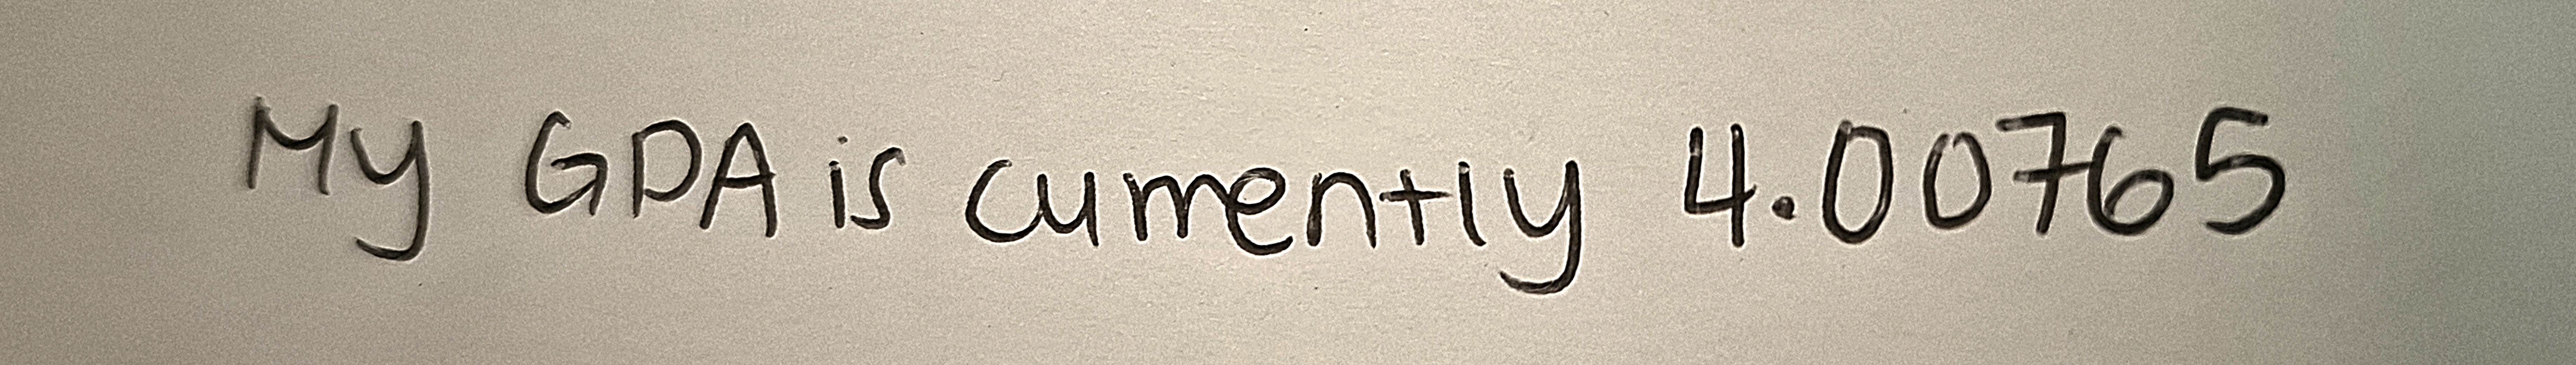 My GDA is currently 4.00765